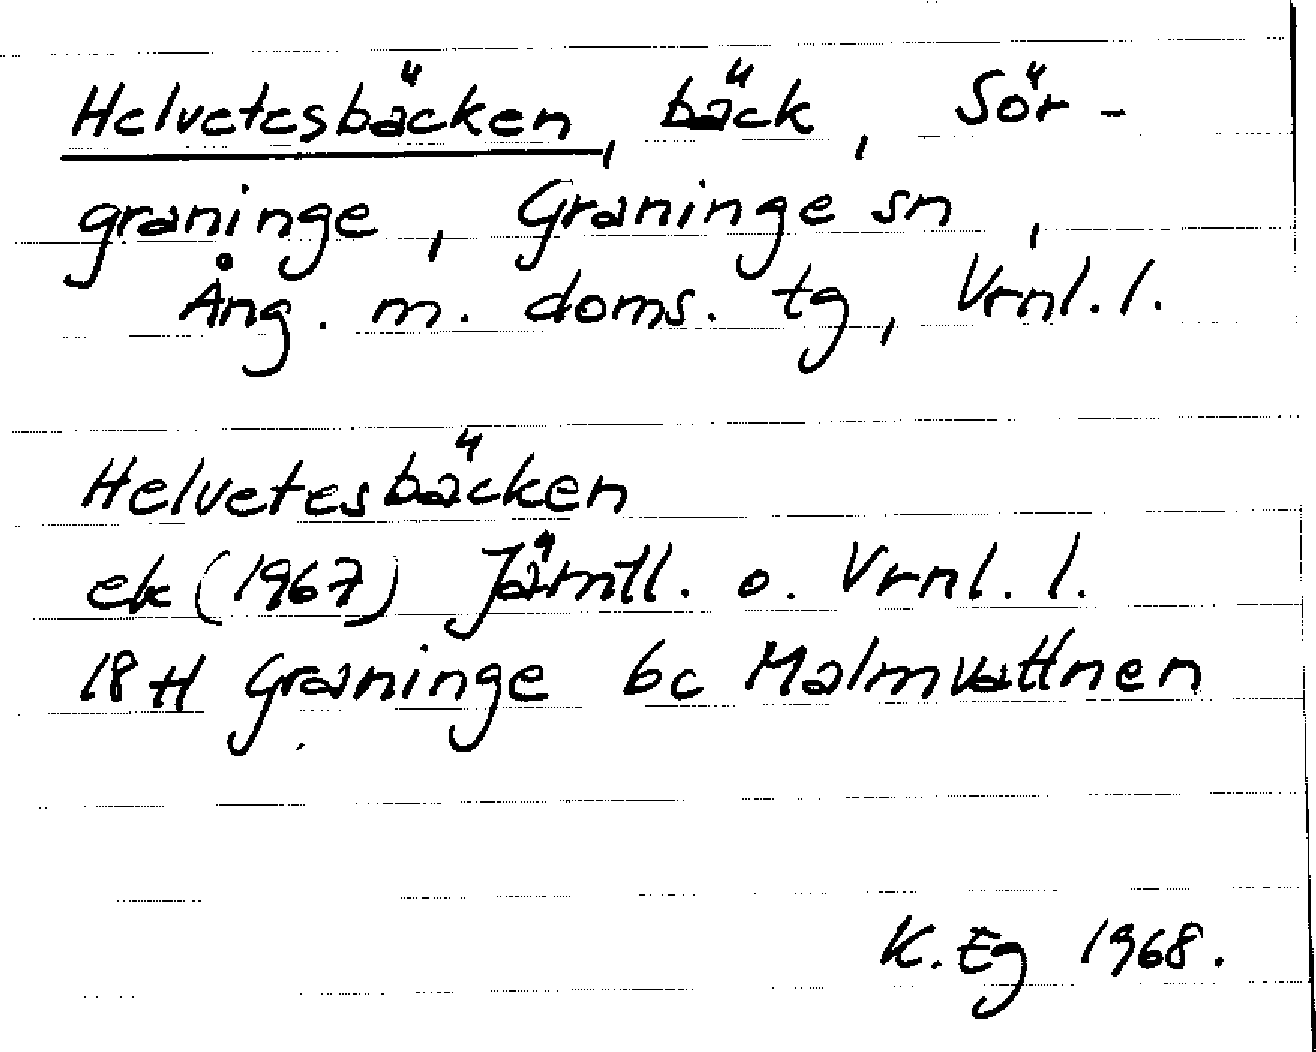 Helvetesbäcken, bäck, Sör-
graninge, Graninge sn,
Ång. m. doms. tg, Vrnl. l.
Helvetesbäcken
ek (1967) Jämtl. o. Vrnl. l.
18H Graninge 6c Malmvattnen
K. Eg 1968.